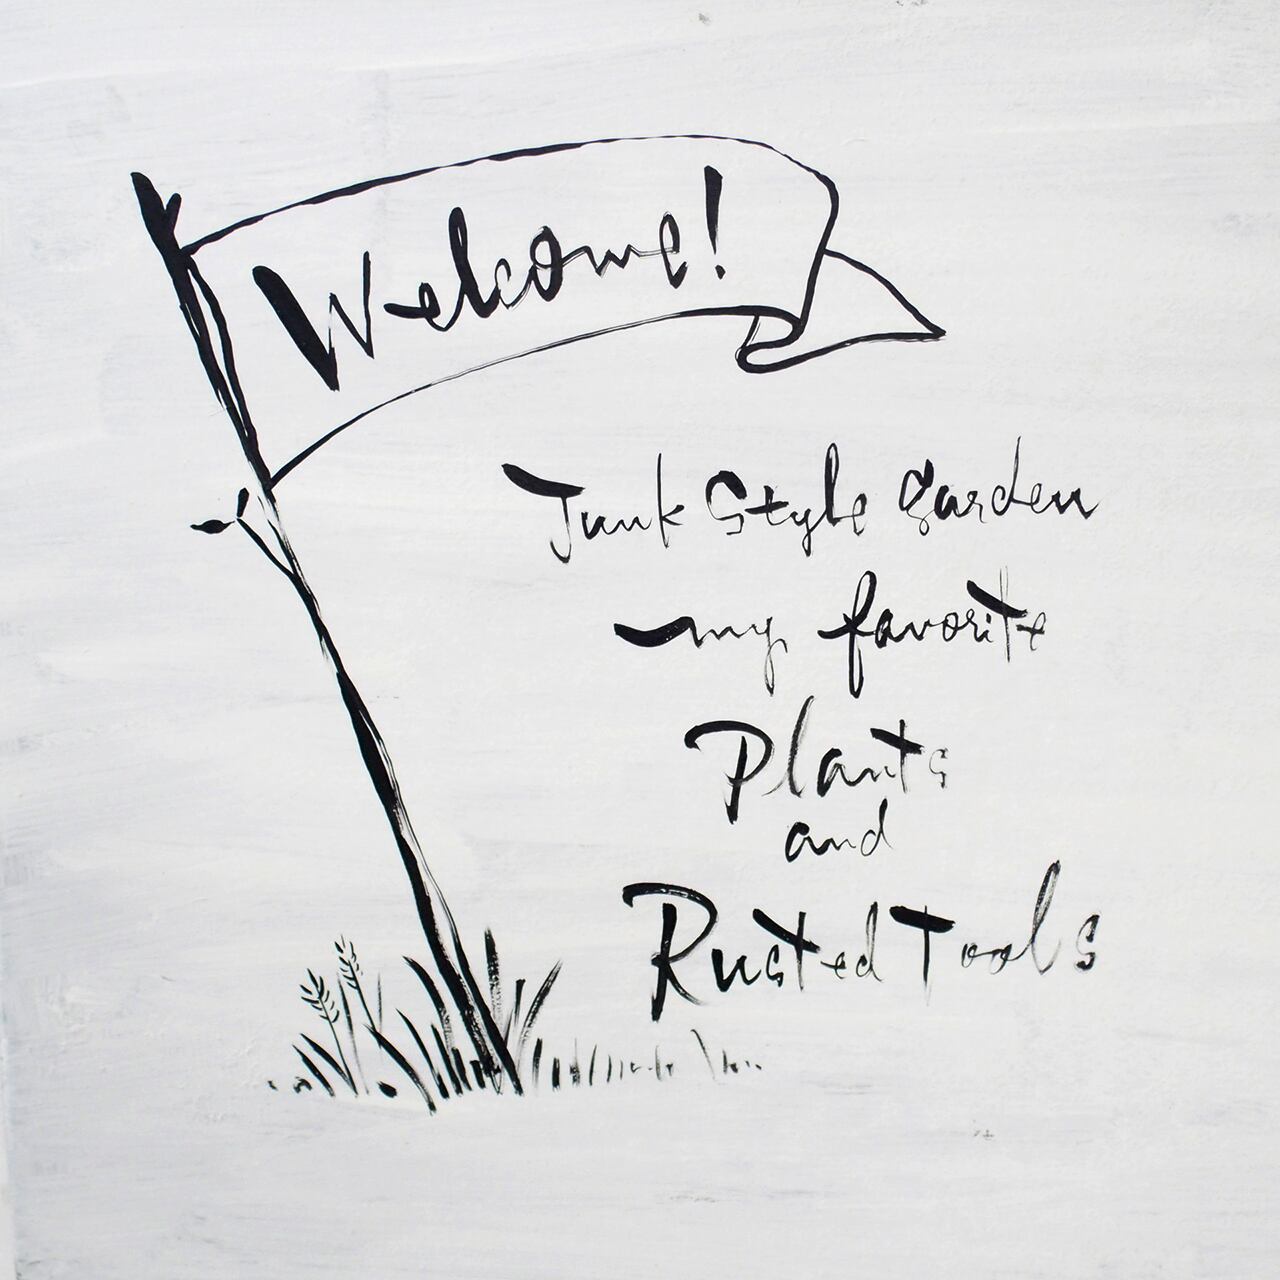 Welcome!
Junk Style Garden
my favorite
Plants
and
Rusted Tools